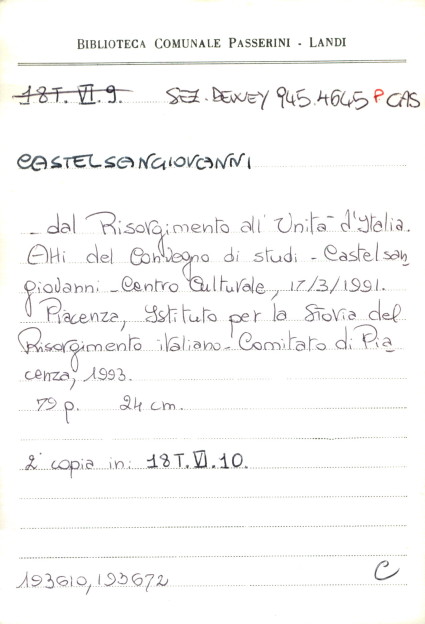 BIBLIOTECA COMUNALE PASSERINI - LANDI
18T. VI. 9. SEZ. DEWEY 945.4645 P CAS
CASTELSANGIOVANNI
- dal Risorgimento all'Unità d'Italia.
Atti del Convegno di studi - Castelsan
giovanni - Centro Culturale, 17/3/1991.
- Piacenza, Istituto per la Storia del
Risorgimento italiano - Comitato di Pia
cenza, 1993.
79 p. 24 cm.
2ª copia in: 18T. VI. 10.
193610, 193672 C